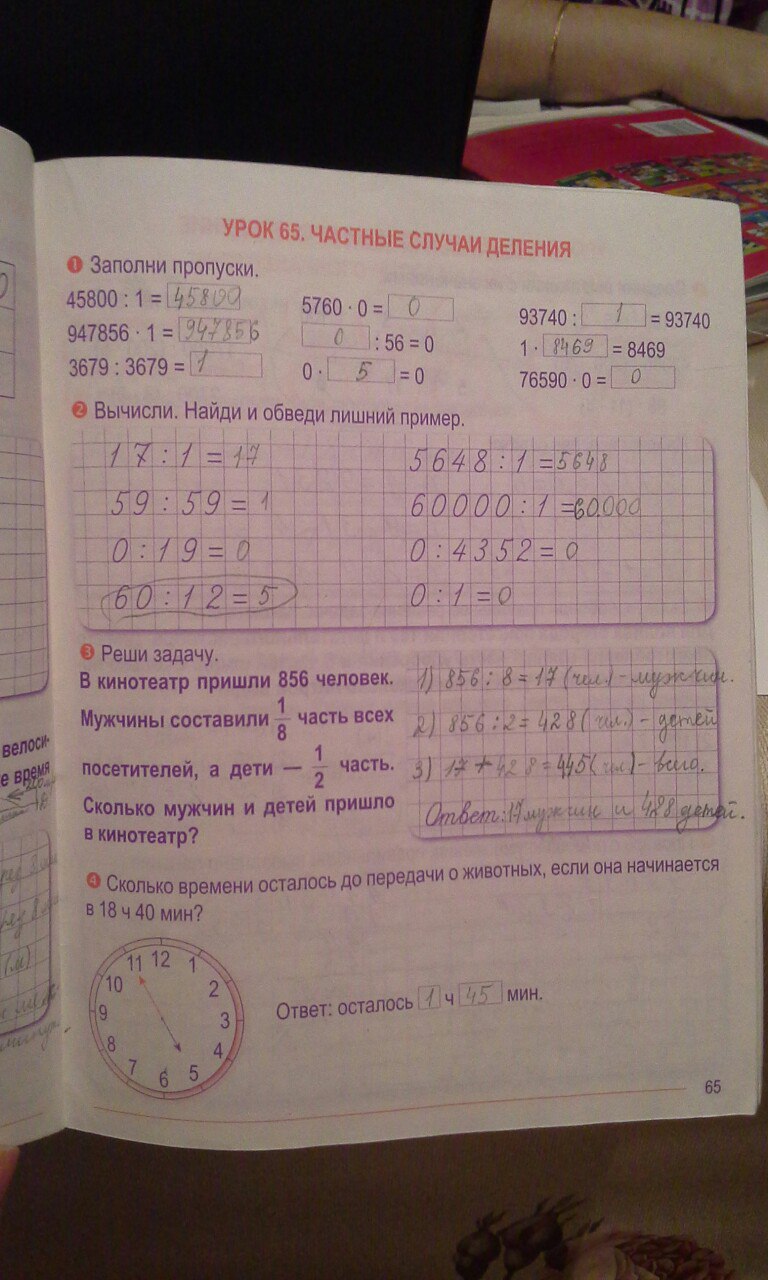 УРОК 65. ЧАСТНЫЕ СЛУЧАИ ДЕЛЕНИЯ
1 Заполни пропуски.
45800 : 1 = 45800
5760 · 0 = 0
93740 : 1 = 93740
947856 · 1 = 947856
0 : 56 = 0
1 · 8469 = 8469
3679 : 3679 = 1
0 · 5 = 0
76590 · 0 = 0
2 Вычисли. Найди и обведи лишний пример.
17 : 1 = 17
5648 : 1 = 5648
59 : 59 = 1
60000 : 1 = 60.000
0 : 19 = 0
0 : 4352 = 0
60 : 12 = 5
0 : 1 = 0
3 Реши задачу.
В кинотеатр пришли 856 человек.
Мужчины составили 1/8 часть всех
посетителей, а дети — 1/2 часть.
Сколько мужчин и детей пришло
в кинотеатр?
1) 856 : 8 = 17 (чел.) - мужчин.
2) 856 : 2 = 428 (чел.) - детей
3) 17 + 428 = 445 (чел) - всего.
Ответ: 17 мужчин и 428 детей.
4 Сколько времени осталось до передачи о животных, если она начинается
в 18 ч 40 мин?
11 12 1
10 2
9 3
8 4
7 6 5
Ответ: осталось 1 ч 45 мин.
65
велоси-
е время